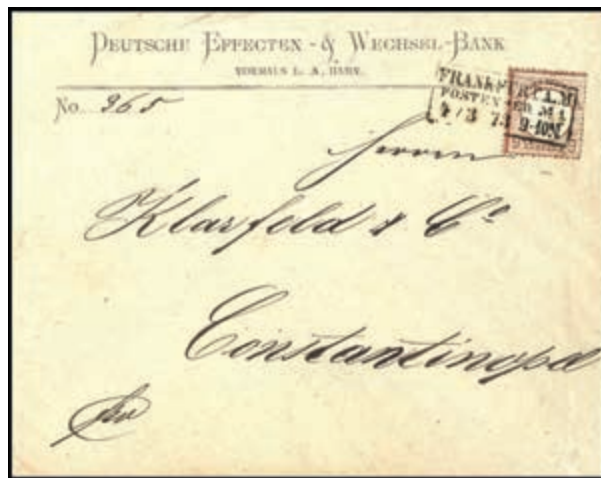 DEUTSCHE EFFECTEN - & WECHSEL-BANK
VORMALS L. A. HAHN.
No. 965
FRANKFURT A. M.
POSTEN
73 9-10N
Herrn
Klarfeld & Co
Constantinopel